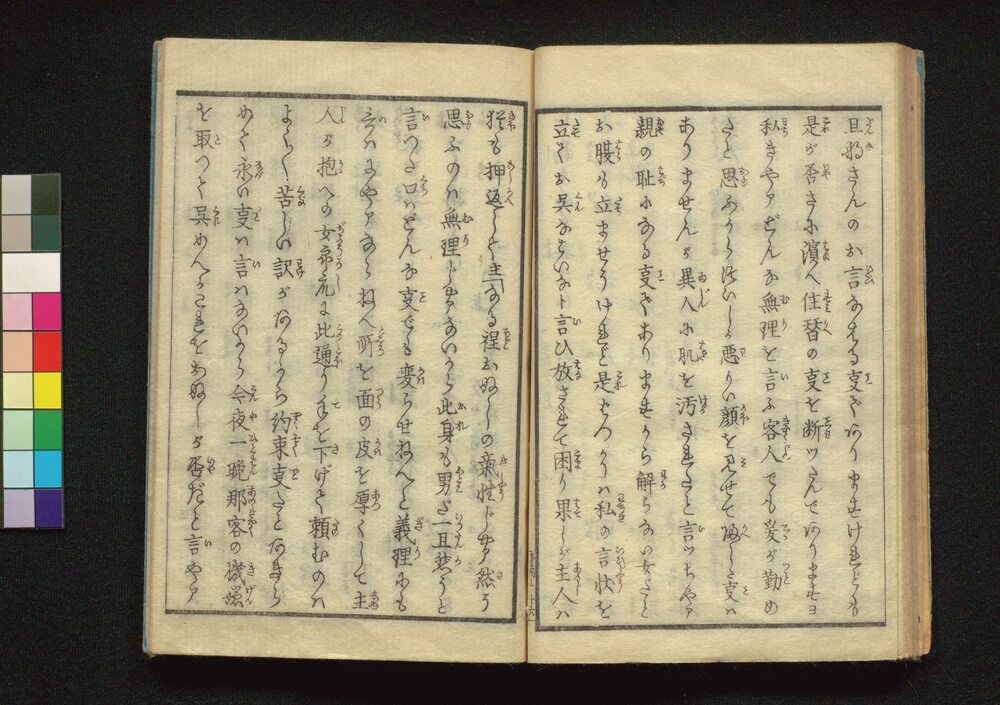 旦那さんのお言なさる事でありますけれども
是が否さに濱へ住替の事を断ツたんでありますヨ
私きやアどんな無理を言ふ客人でも爰が勤め
だと思ふから終いしか悪りい顔を見せて帰した事は
ありませんが異人に肌を汚されたと言ツちやア
親の耻になる事でありますから解らない女だと
お腹も立ませうけれど是ばつかりは私の言状を
立てお呉なさいなト言ひ放されて困り果しが主人は
猶も押返して主「なる程おぬしの氣性じやア然う
思ふのは無理じやアないから此身も男だ一旦然うと
言つた口はどんな事でも変らせねへと義理にも
言はにやアならねへ所を面の皮を厚くして主
人が抱への女郎衆に此通り手を下げて頼むのは
よくよく苦しい訳があるから約束事だとあきら
めて永い事は言はないから今夜一晩那客の機嫌
を取つて呉めんかこれをおぬしが否だと言やア
十六